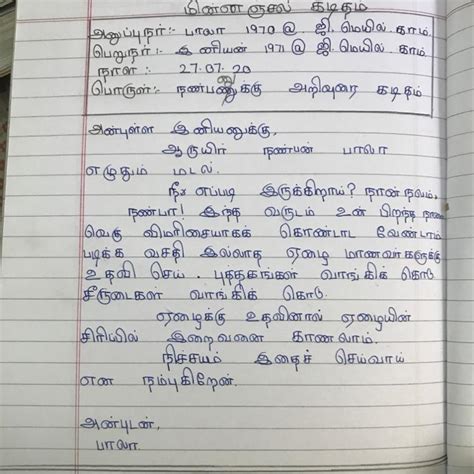 மின்னஞ்சல் கடிதம்
அனுப்புநர்:- பாலா 1970 @ ஜி.மெயில். காம்.
பெறுநர்:- இனியன் 1971 @ ஜி.மெயில். காம்
நாள் :- 27.07.20
பொருள்:- நண்பனுக்கு அறிவுரை கடிதம்
அன்புள்ள இனியனுக்கு,
ஆருயிர் நண்பன் பாலா
எழுதும் மடல்.
நீ எப்படி இருக்கிறாய்? நான் நலம்,
நண்பா! இந்த வருடம் உன் பிறந்த நாளை
வெகு விமரிசையாகக் கொண்டாட வேண்டாம்
படிக்க வசதி இல்லாத ஏழை மாணவர்களுக்கு
உதவி செய். புத்தகங்கள் வாங்கிக் கொடு
சீருடைகள் வாங்கிக் கொடு.
ஏழைக்கு உதவினால் ஏழையின்
சிரியில் இறைவனை காணலாம்.
நிச்சயம் இதைச் செய்வாய்
என நம்புகிறேன்.
அன்புடன்,
பாலா.